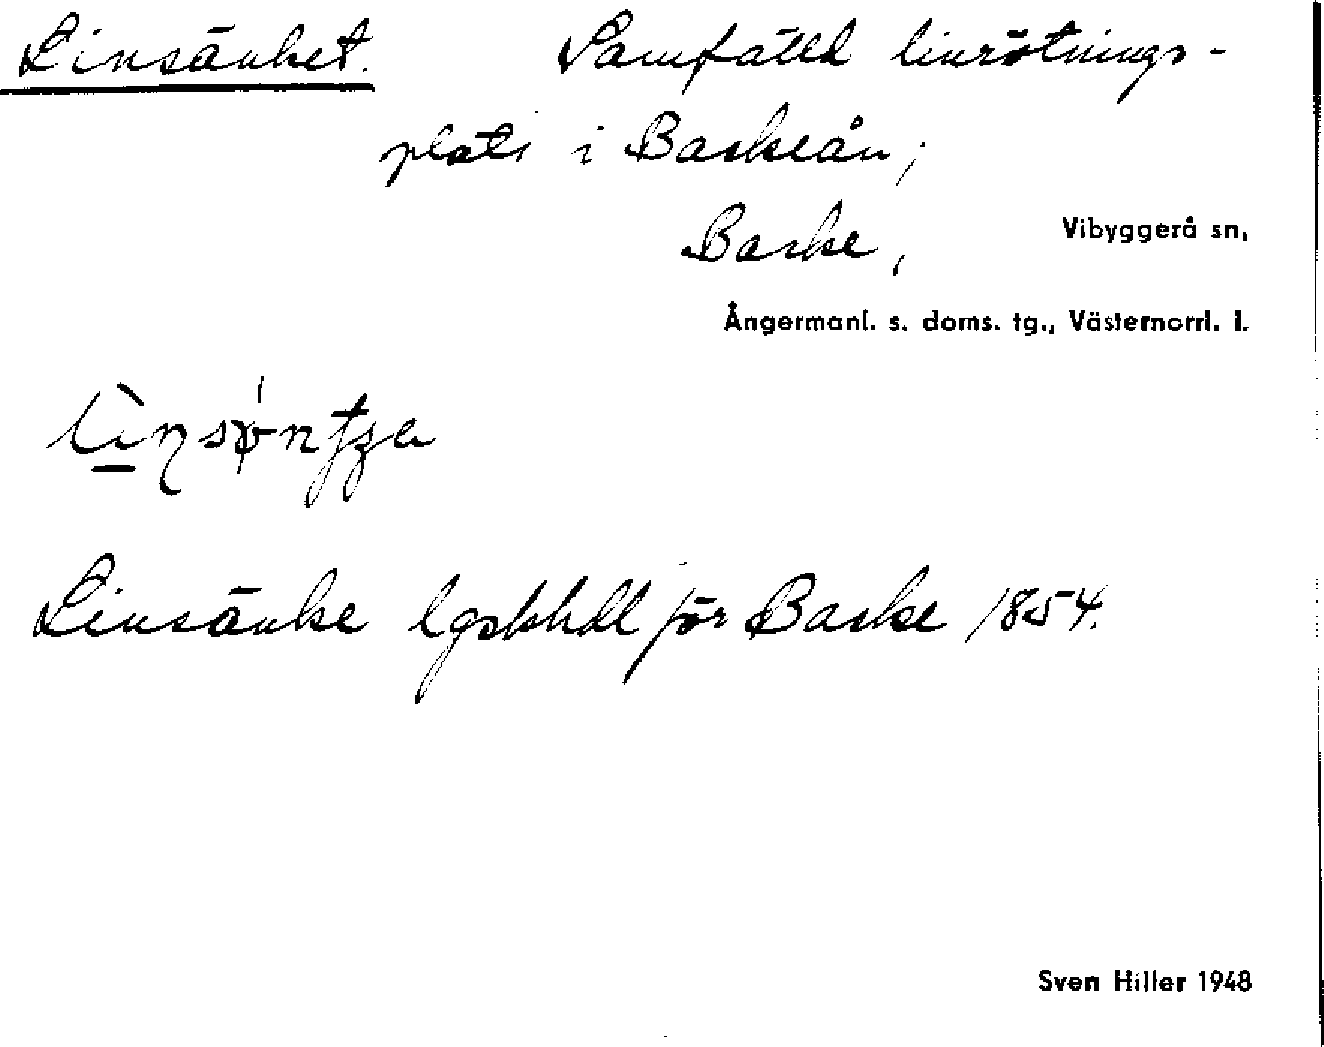 Linsänket. Samfälld linrötnings-
plats i Baskeån,
Baske, Vibyggerå sn,
Ångermanl. s. doms. tg., Västernorrl. l.
Linsänke lgskhdl för Baske 1854.
Sven Hiller 1948